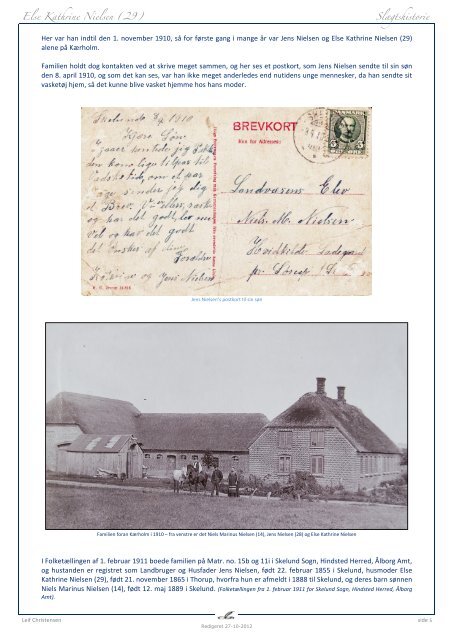 Else Kathrine Nielsen (29)
Slægtshistorie
Her var han indtil den 1. november 1910, så for første gang i mange år var Jens Nielsen og Else Kathrine Nielsen (29)
alene på Kærholm.
Familien holdt dog kontakten ved at skrive meget sammen, og her ses et postkort, som Jens Nielsen sendte til sin søn
den 8. april 1910, og som det kan ses, var han ikke meget anderledes end nutidens unge mennesker, da han sendte sit
vasketøj hjem, så det kunne blive vasket hjemme hos hans moder.
Skelund 8/4 1910
Kjære Søn
dig
et Brev
og har det godt
Vel og har det godt
det ønsker
Forældre
og Jens Nielsen
BREVKORT
Kun for Adressen:
DANMARK
5 5
Landvæsens Elev
Niels M. Nielsen
Hvidkilde Ladegaard
pr
Jens Nielsen's postkort til sin søn
Familien foran Kærholm i 1910 – fra venstre er det Niels Marinus Nielsen (14), Jens Nielsen (28) og Else Kathrine Nielsen
I Folketællingen af 1. februar 1911 boede familien på Matr. no. 15b og 11i i Skelund Sogn, Hindsted Herred, Ålborg Amt,
og husstanden er registret som Landbruger og Husfader Jens Nielsen, født 22. februar 1855 i Skelund, husmoder Else
Kathrine Nielsen (29), født 21. november 1865 i Thorup, hvorfra hun er afmeldt i 1888 til Skelund, og deres barn sønnen
Niels Marinus Nielsen (14), født 12. maj 1889 i Skelund. (Folketællingen fra 1. februar 1911 for Skelund Sogn, Hindsted Herred, Ålborg
Amt).
Leif Christensen
side 5
Redigeret 27-10-2012